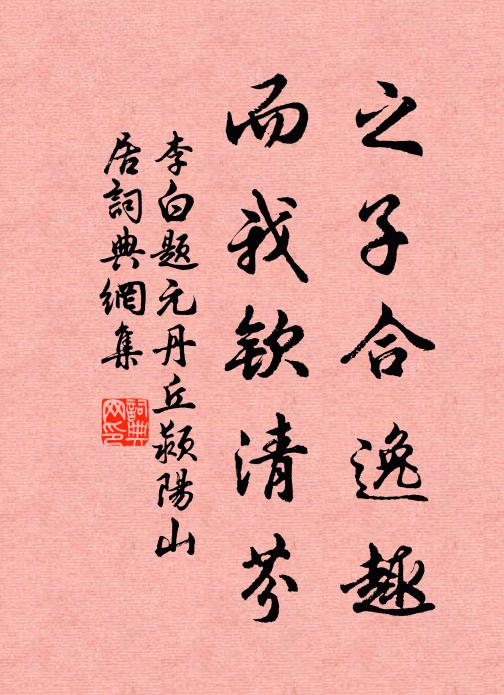 之子合逸趣
而我欽清芬
李白题元丹丘颍陽山
居詞典網集
詞典网印